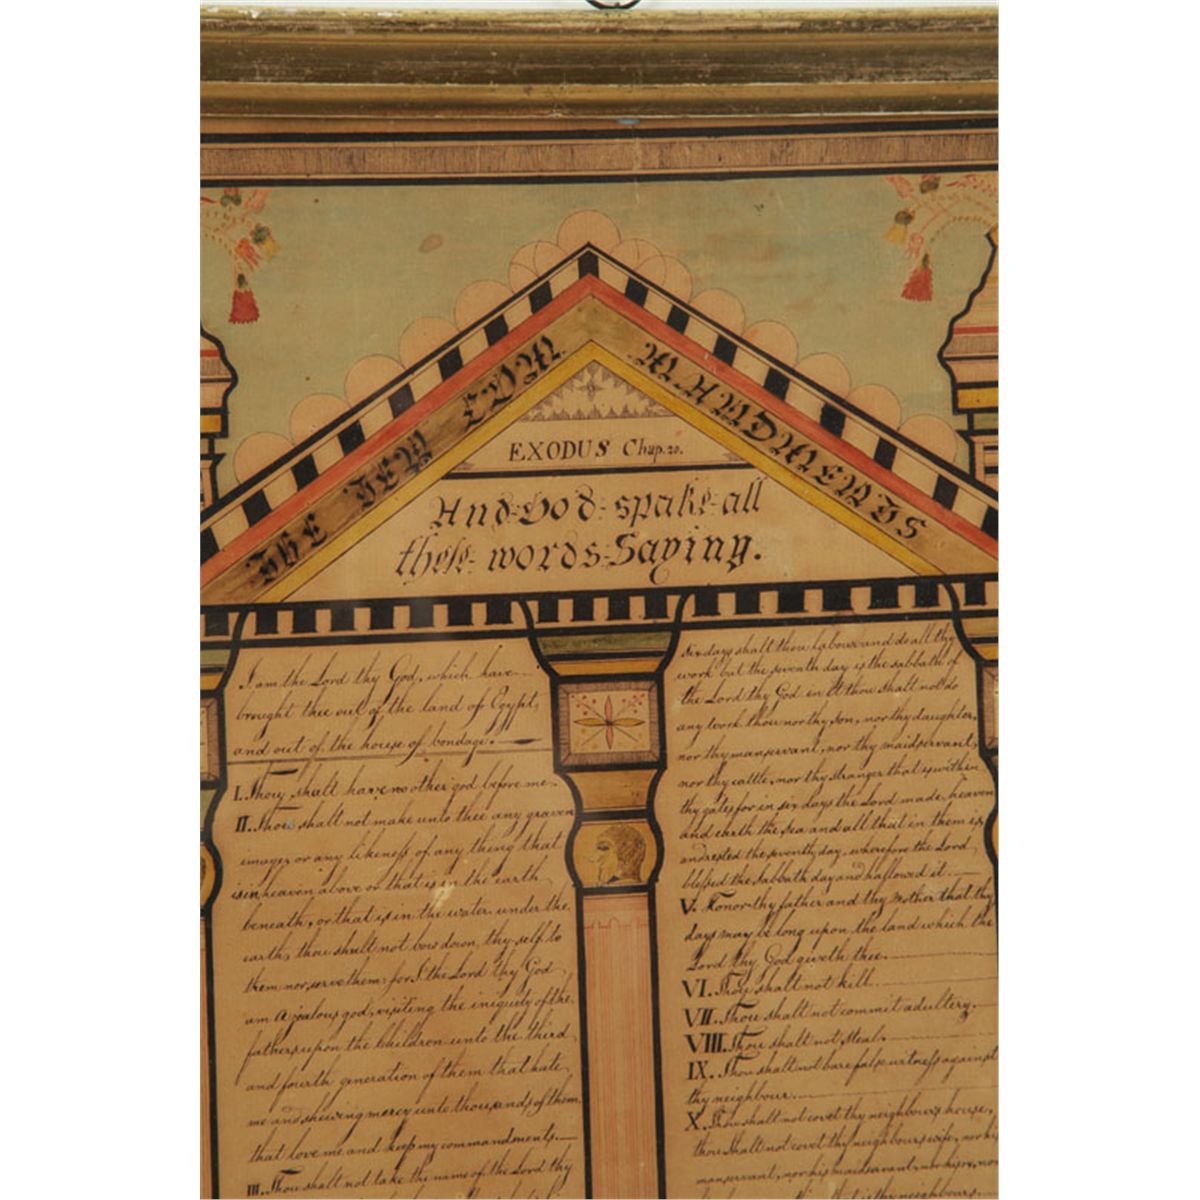 THE TEN COM MANDMENTS
EXODUS Chap. 20.
And God spake all
these words Saying.
I am the Lord thy God, which have
brought thee out of the land of Egypt,
and out of the house of bondage.
I. Thou shalt have no other god before me.
II. Thou shalt not make unto thee any graven
images or any likeness of any thing that
is in heaven above or that is in the earth
beneath, or that is in the water under the
earth, thou shalt not bow down thy self to
them nor serve them for I the Lord thy God
am a jealous god, visiting the iniquity of the
fathers upon the children unto the third
and fourth generation of them that hate
me and shewing mercy unto thousands of them
that love me and keep my commandments.
III. Thou shalt not take the name of the Lord thy
six days shalt thou labour and do all thy
work but the seventh day is the sabbath of
the Lord thy God in it thou shalt not do
any work thou nor thy son, nor thy daughter,
nor thy manservant, nor thy maidservant,
nor thy cattle, nor thy stranger that is within
thy gates for in six days the Lord made, heaven
and earth the sea and all that in them is
and rested the seventh day, wherefore the Lord
blessed the Sabbath day and hallowed it.
V. Honor thy father and thy Mother that thy
days may be long upon the land which the
Lord thy God giveth thee.
VI. Thou shalt not kill.
VII. Thou shalt not commit adultery.
VIII. Thou shalt not Steal.
IX. Thou shalt not bare false witness against
thy neighbour.
X. Thou shalt not covet thy neighbours house,
thou shalt not covet thy neighbours wife, nor his
manservant, nor his maidservant, nor his ox, nor
that is thy neighbours